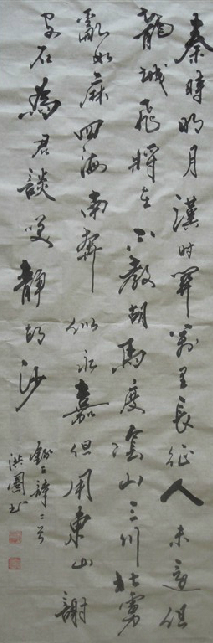 秦時明月漢時關萬里長征人未還但
龍城飛將在不教胡馬度陰山三川北虜
亂如麻四海南奔似永嘉但用東山謝
安石為君談笑靜胡沙